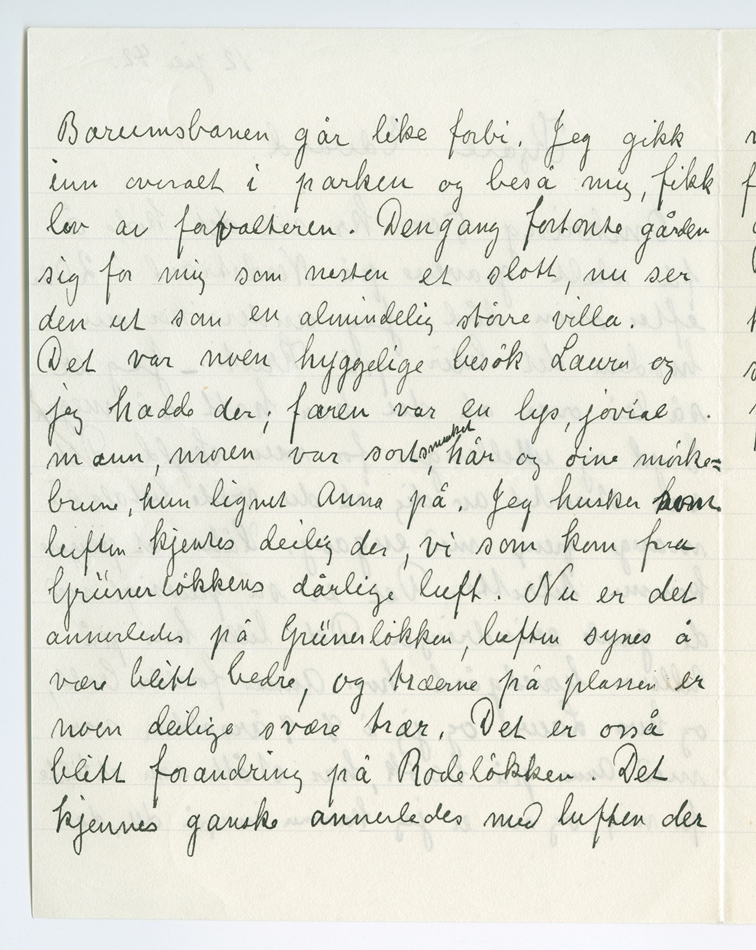 Bærumsbanen går like forbi. Jeg gikk
inn overalt i parken og beså mig, fikk
lov av forvalteren. Dengang fortonte gården
sig for mig som nesten et slott, nu ser
den ut som en almindelig större villa.
Det var noen hyggelige besök Laura og
jeg hadde der; faren var en lys, jovial
mann, moren var sortsmusket, hår og öine mörke=
brune, hun lignet Anna på. Jeg husker
luften kjentes deilig der, vi som kom fra
Grünerlökkens dårlige luft. Nu er det
annerledes på Grünerlökken, luften synes å
være blitt bedre, og trærne på plassen er
noen deilige svære trær. Det er osså
blitt forandring på Rodelökken. Det
kjennes ganske annerledes med luften der